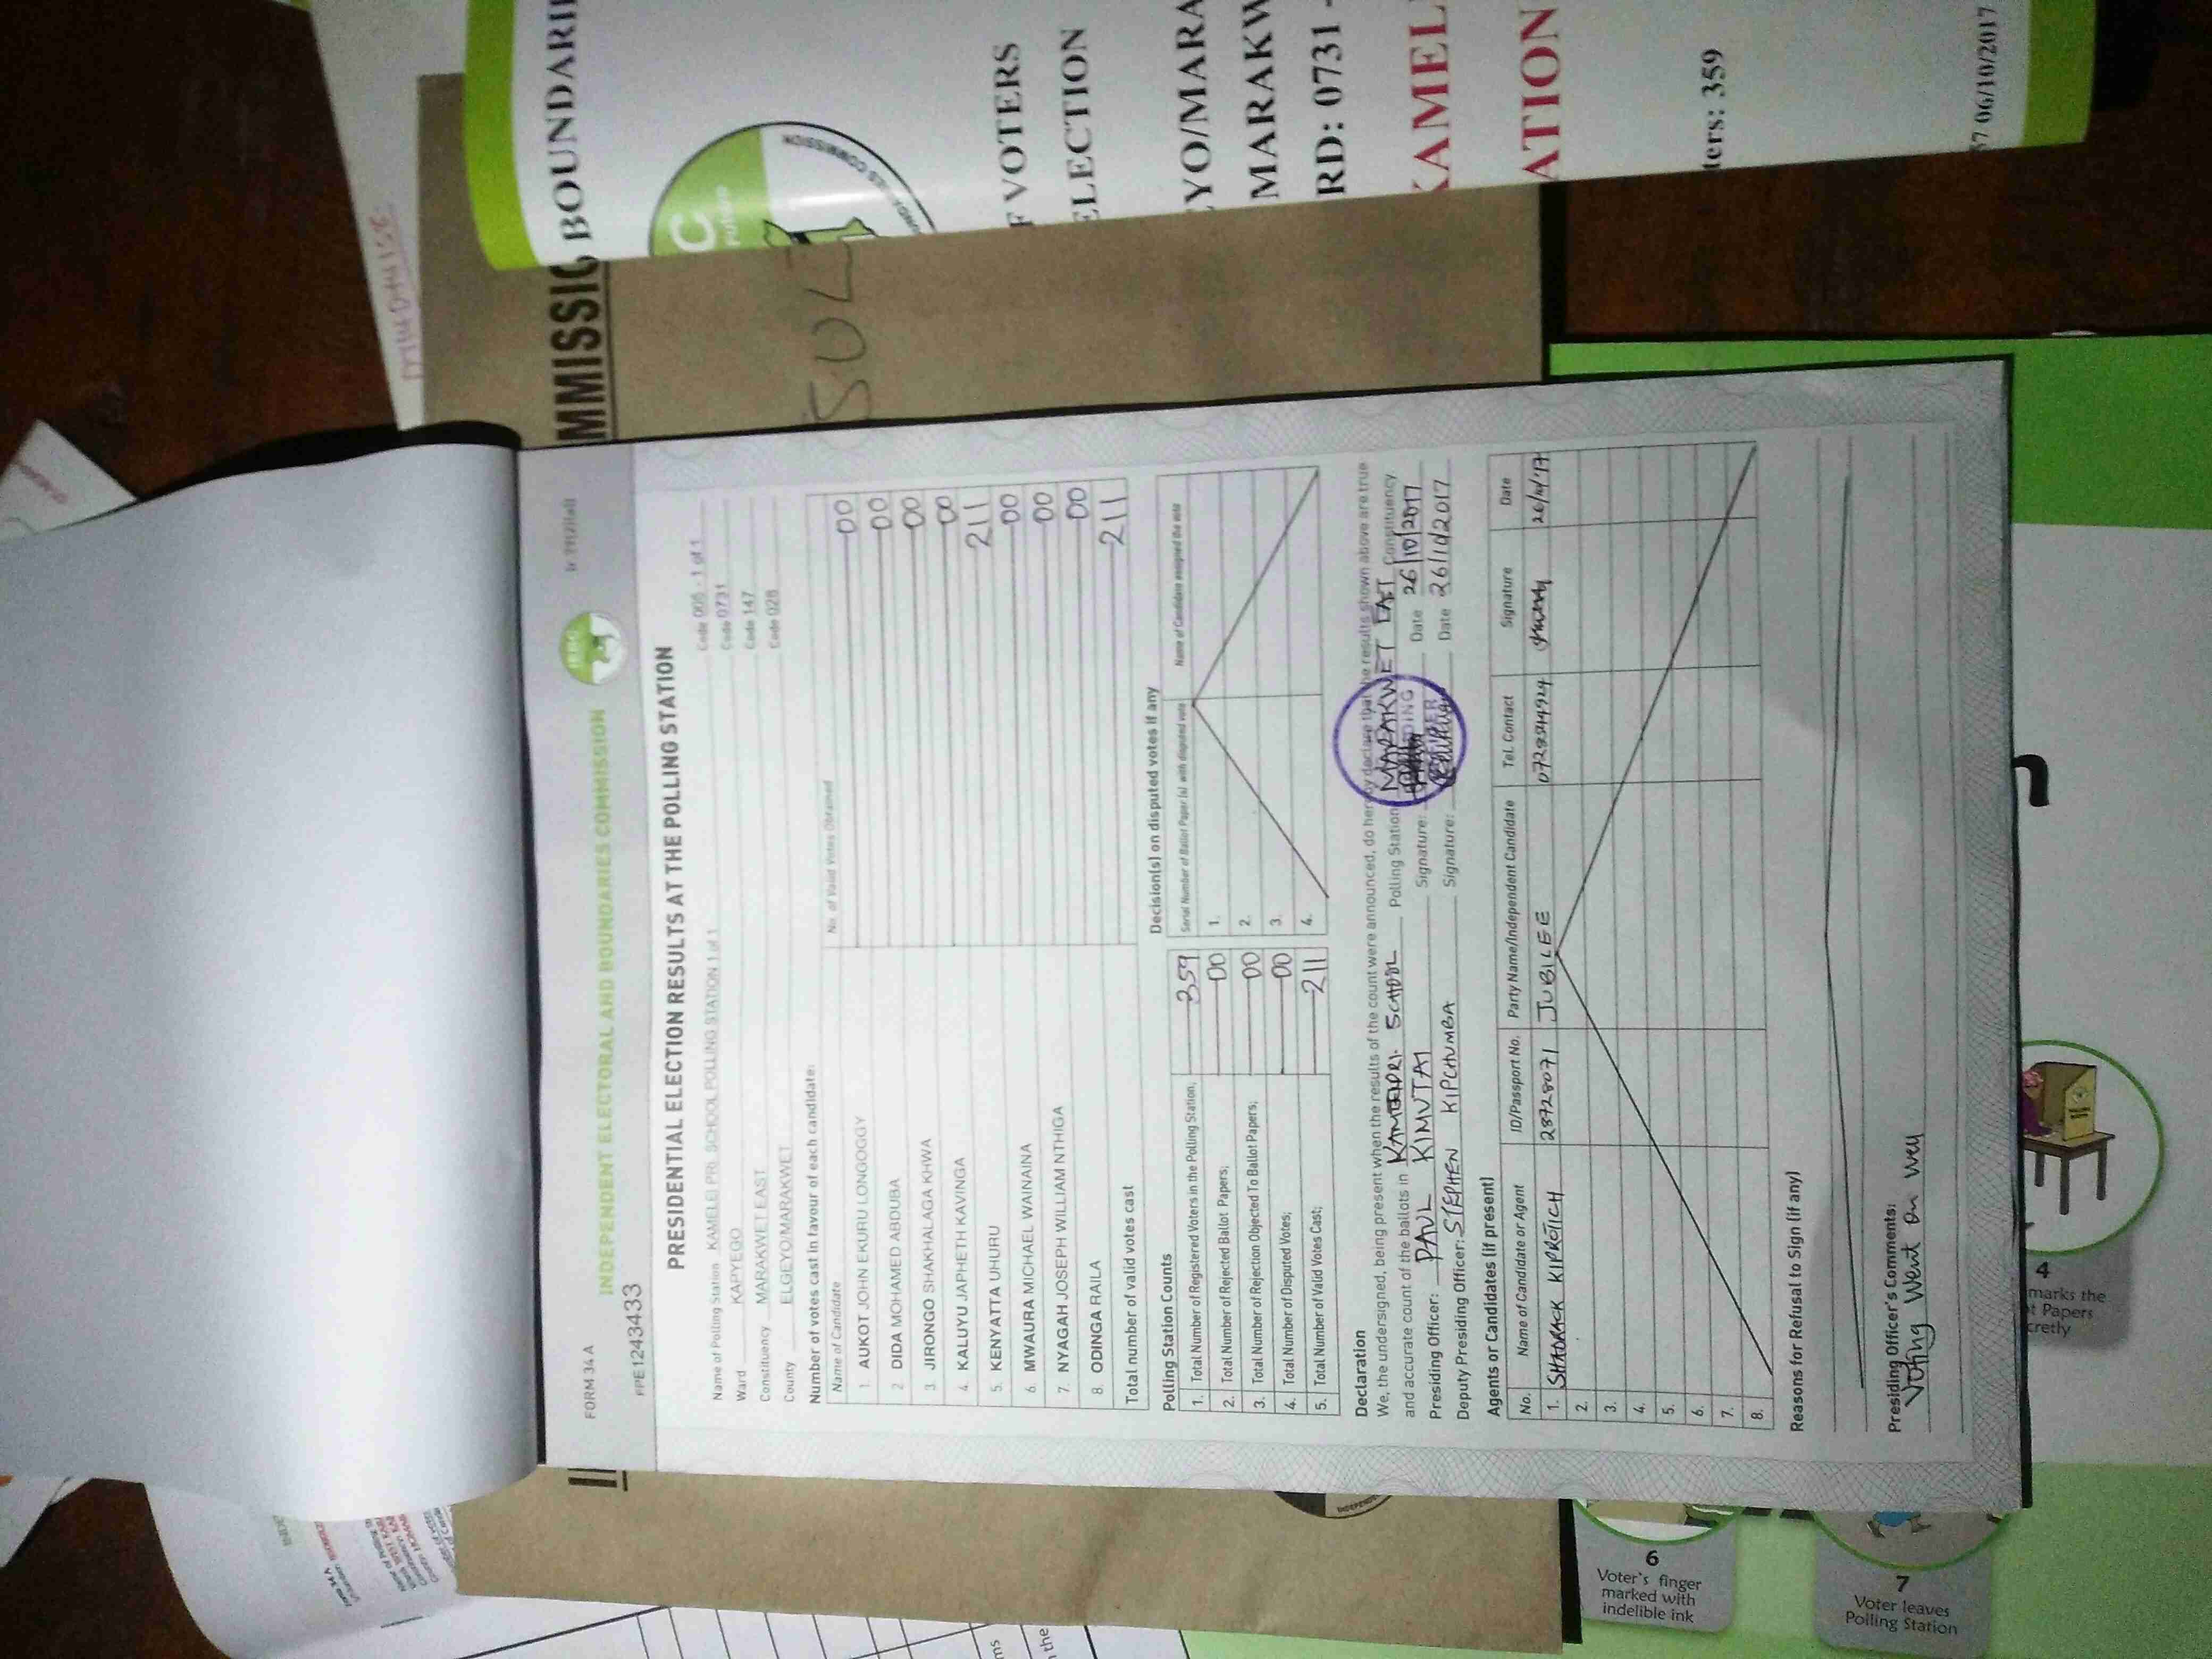 FORM 34 A
INDEPENDENT ELECTORAL AND BOUNDARIES COMMISSION
IEBC
PPE1243433
PRESIDENTIAL ELECTION RESULTS AT THE POLLING STATION
Name of Polling Station KAMELEI PRI. SCHOOL POLLING STATION 1 of 1 Code 005 - 1 of 1
Ward KAPYEGO Code 0731
Constituency MARAKWET EAST Code 147
County ELGEYO/MARAKWET Code 028
Number of votes cast in favour of each candidate:
Name of Candidate No. of Valid Votes Obtained
1. AUKOT JOHN EKURU LONGOGGY 00
2 DIDA MOHAMED ABDUBA 00
3. JIRONGO SHAKHALAGA KHWA 00
4. KALUYU JAPHETH KAVINGA 00
5. KENYATTA UHURU 211
6. MWAURA MICHAEL WAINAINA 00
7. NYAGAH JOSEPH WILLIAM NTHIGA 00
8. ODINGA RAILA 00
Total number of valid votes cast 211
Polling Station Counts
1. Total Number of Registered Voters in the Polling Station; 359
2. Total Number of Rejected Ballot Papers; 00
3. Total Number of Rejection Objected To Ballot Papers; 00
4. Total Number of Disputed Votes; 00
5. Total Number of Valid Votes Cast; 211
Decision(s) on disputed votes if any
Serial Number of Ballot Paper (s) with disputed vote Name of Candidate assigned the vote
1.
2.
3.
4.
Declaration
We, the undersigned, being present when the results of the count were announced, do hereby declare that the results shown above are true
and accurate count of the ballots in PRI. SCHOOL Polling Station MARAKWET EAST Constituency
Presiding Officer: PAUL KIMUTAI Signature: Date 26/10/2017
Deputy Presiding Officer: STEPHEN KIPCHUMBA Signature: Date 26/10/2017
Agents or Candidates (if present)
No. Name of Candidate or Agent ID/Passport No. Party Name/Independent Candidate Tel. Contact Signature Date
1. SHADRACK KIPROTICH 28728071 JUBILEE 26/10/17
2.
3.
4.
5.
6.
7.
8.
Reasons for Refusal to Sign (if any)
Presiding Officer's Comments:
Voting Went on well
MMISSIO
SUL
BOUNDARI
C
F VOTERS
ELECTION
YO/MARA
MARAKW
RD: 0731 -
KAMEL
ATION
ters: 359
57 06/10/2017
4
marks the
t Papers
cretly
6
Voter's finger
marked with
indelible ink
7
Voter leaves
Polling Station